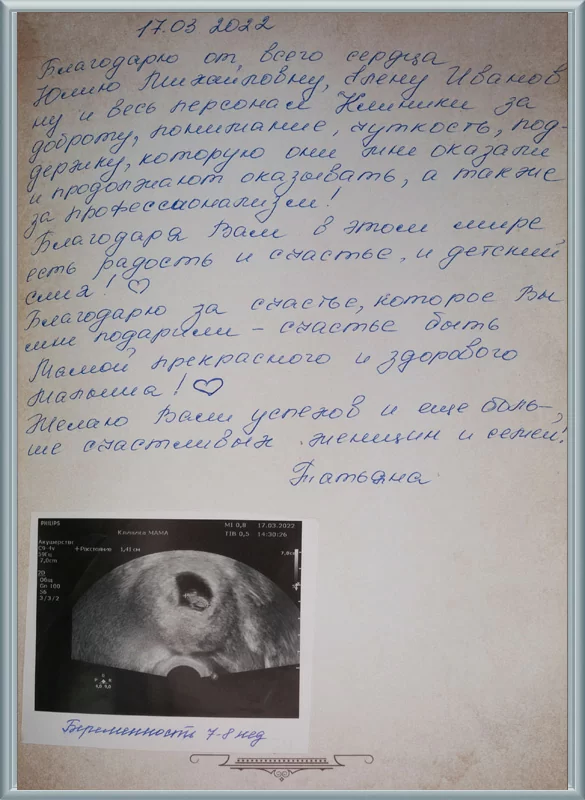 17.03 2022
Благодарю от всего сердца
Юлию Михайловну, Елену Иванов
ну и весь персонал Клиники за
доброту, понимание, чуткость, под-
держку, которую они мне оказали
и продолжают оказывать, а также
за профессионализм!
Благодаря Вам в этом мире
есть радость и счастье, и детский
смех! ♡
Благодарю за счастье, которое Вы
мне подарили – счастье быть
Мамой прекрасного и здорового
малыша! ♡
Желаю Вам успехов и еще боль-
ше счастливых женщин и семей!
Татьяна
PHILIPS
MI 0,8 17.03.2022
Клиника МАМА
TIB 0,5 14:30:26
Акушерство
C9-4v
+Расстояние 1,41 см
7,0см
2D
Общ
Gn 100
56
3/3/2
Беременность 7-8 нед